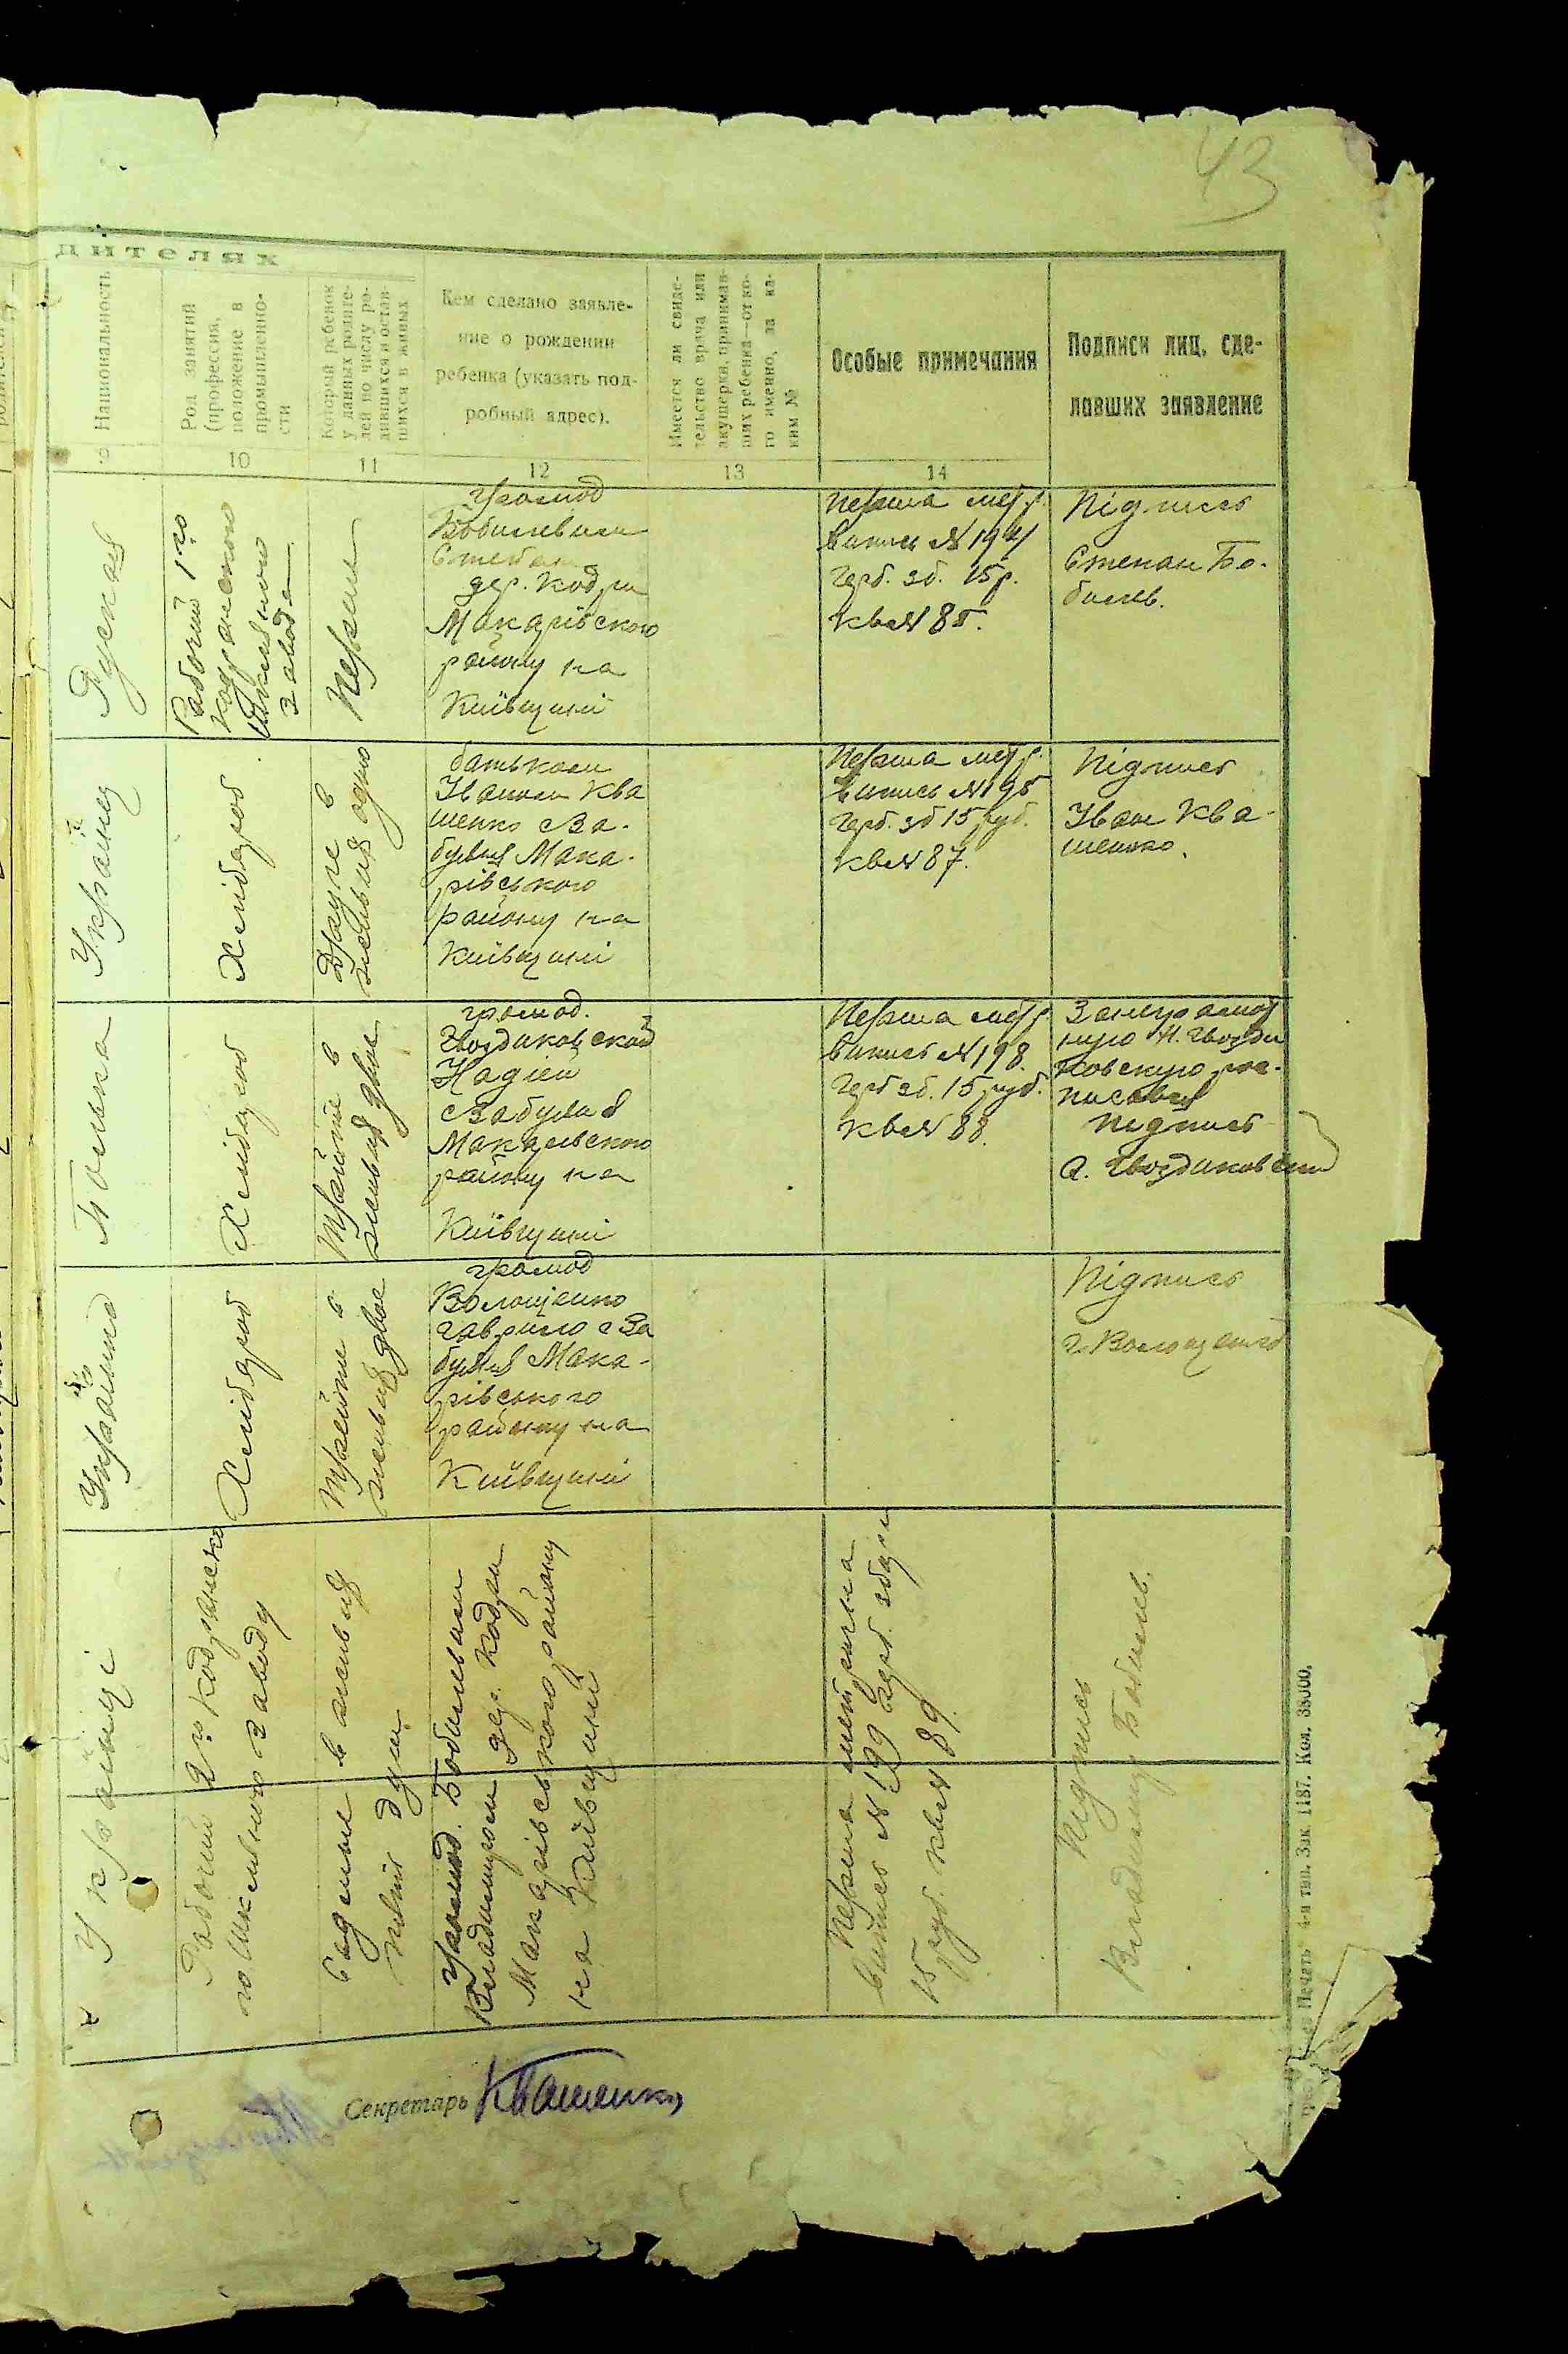 43
дителях
Национальность
Род занятий
(профессия,
положение в
промышленно-
сти
Который ребенок
у данных родите-
лей по числу ро-
дившихся и остав-
шихся в живых
Кем сделано заявле-
ние о рождении
ребенка (указать под-
робный адрес).
Имеется ли свиде-
тельство врача или
акушерки, принимав-
ших ребенка—от ко-
го именно, за ка-
ким №
Особые примечания
Подписи лиц, сде-
лавших заявление
10
11
12
13
14
Руская
Рабочий 1го
Кодранского
завода
Перше
громод
Бобилевим
Степан
дер. Кодри
Макарівського
району на
Київщині
Перша метр.
випись № 194
Герб. зб. 15 р.
кв № 85.
Підпись
Степан Бо-
билев.
Українец
Хлібороб
Друге в
живих одно
батьком
Іваном Ква
шенко с За-
буяння Мака-
рівського
району на
Київщині
Перша метр.
випись № 195
Герб. зб 15 руб.
кв № 87.
Підпись
Іван Ква-
шенко.
Полька
Хлібороб
Трейте в
живих двое
громод.
Гвоздиковской
Надіей
с Забуяня
Макарівського
району на
Київщині
Перша метр.
випись № 198.
Герб зб. 15 руб.
кв № 88.
За неграмот
ную Н. Гвозди
ковскую рос-
писався
Підпись
А. Гвоздиковский
Хлібороб
Трейте в
живих двое
громод
Волощенко
Гаврило с За
буяння Мака-
рівського
району на
Київщині
Підпись
Г. Волощенко
Українці
Рабочий 2го Кодранско
го шкляного заводу
Седьме в живих
пять душ
громод. Бобилевим
Владимиром дер. Кодри
Макарівського району
на Київщині
Перша метрична
випись № 199 герб. збору
15 руб. кв № 89.
Підпись
Владимир Бобилев.
Секретарь Квашенко
4-я тип. Зак. 1187. Кол. 38000.